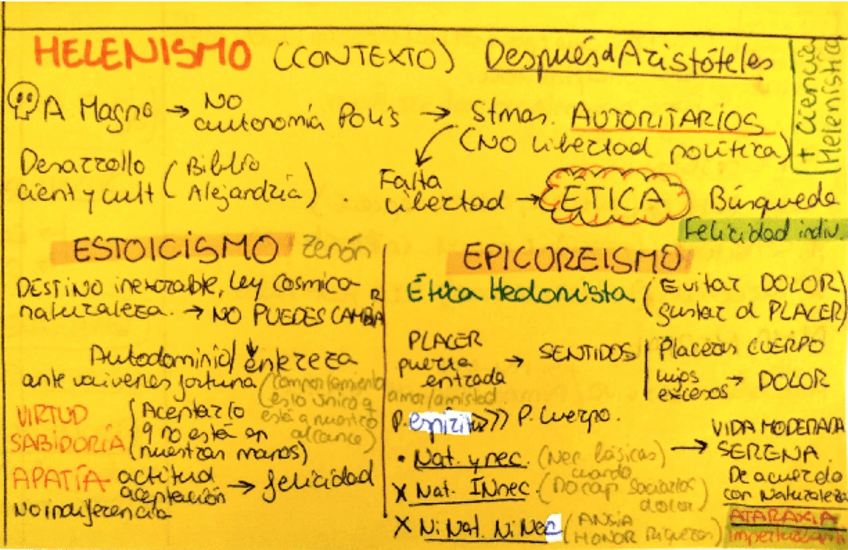 HELENISMO (CONTEXTO) Después d Aristóteles
+ ciencia Helenística
A Magno → NO autonomía Polis → Stmas. AUTORITARIOS
(NO libertad política)
Desarrollo cient y cult (Biblio Alejandría). Falta libertad → ÉTICA Búsqueda
Felicidad indiv.
ESTOICISMO Zenón
DESTINO inexorable, ley cósmica
naturaleza. → NO PUEDES CAMBIAR
Autodominio/ entereza
ante vaivenes fortuna (comportamiento
esto único q
está a nuestro
alcance)
VIRTUD
SABIDORÍA
(Aceptar lo
q no está en
nuestras manos)
APATÍA actitud
aceptación → felicidad
No indiferencia
EPICUREISMO
Ética Hedonista (Evitar DOLOR)
(gustar al PLACER)
PLACER
puerta
entrada → SENTIDOS
Placeres CUERPO
excesos → DOLOR
amor/amistad
P. espíritu >>> P. Cuerpo.
• Nat. y nec. (Nec básicas)
X Nat. INnec. (No cap saciarlos
dolor)
X Ni Nat. Ni Nec (ANSIA
HONOR Riquezas)
→ VIDA MODERADA
SERENA.
De acuerdo
con Naturaleza
ATARAXIA